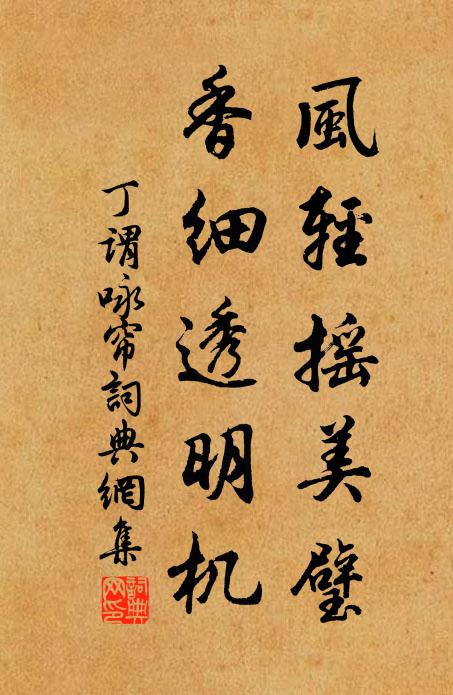 風輕搖美璧
香細透明机
丁謂咏帘詞典網集
詞典网印